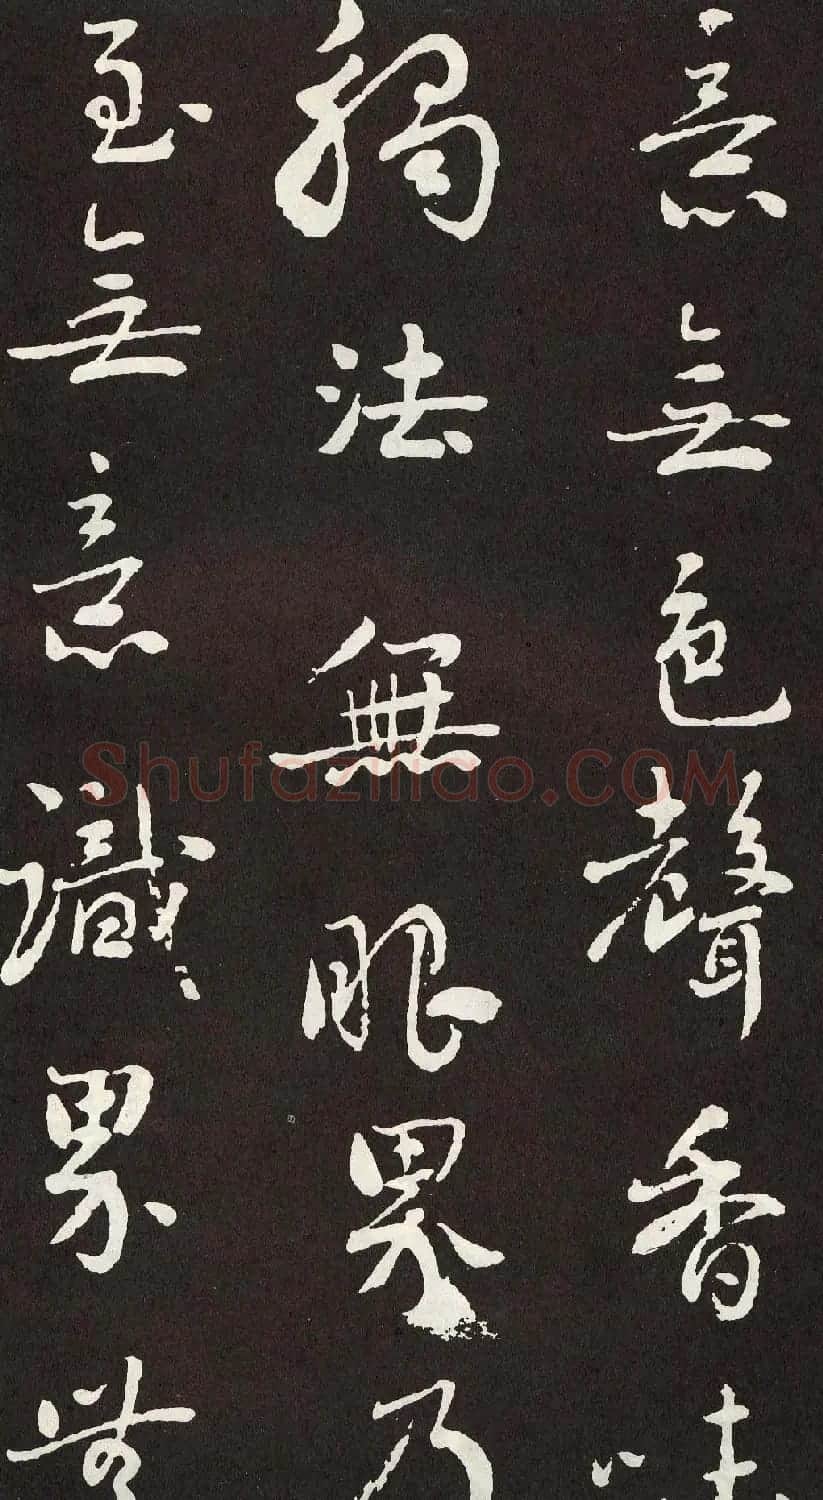 意無色聲香味
觸法無眼界乃
至無意識界無
Shufaziliao.COM